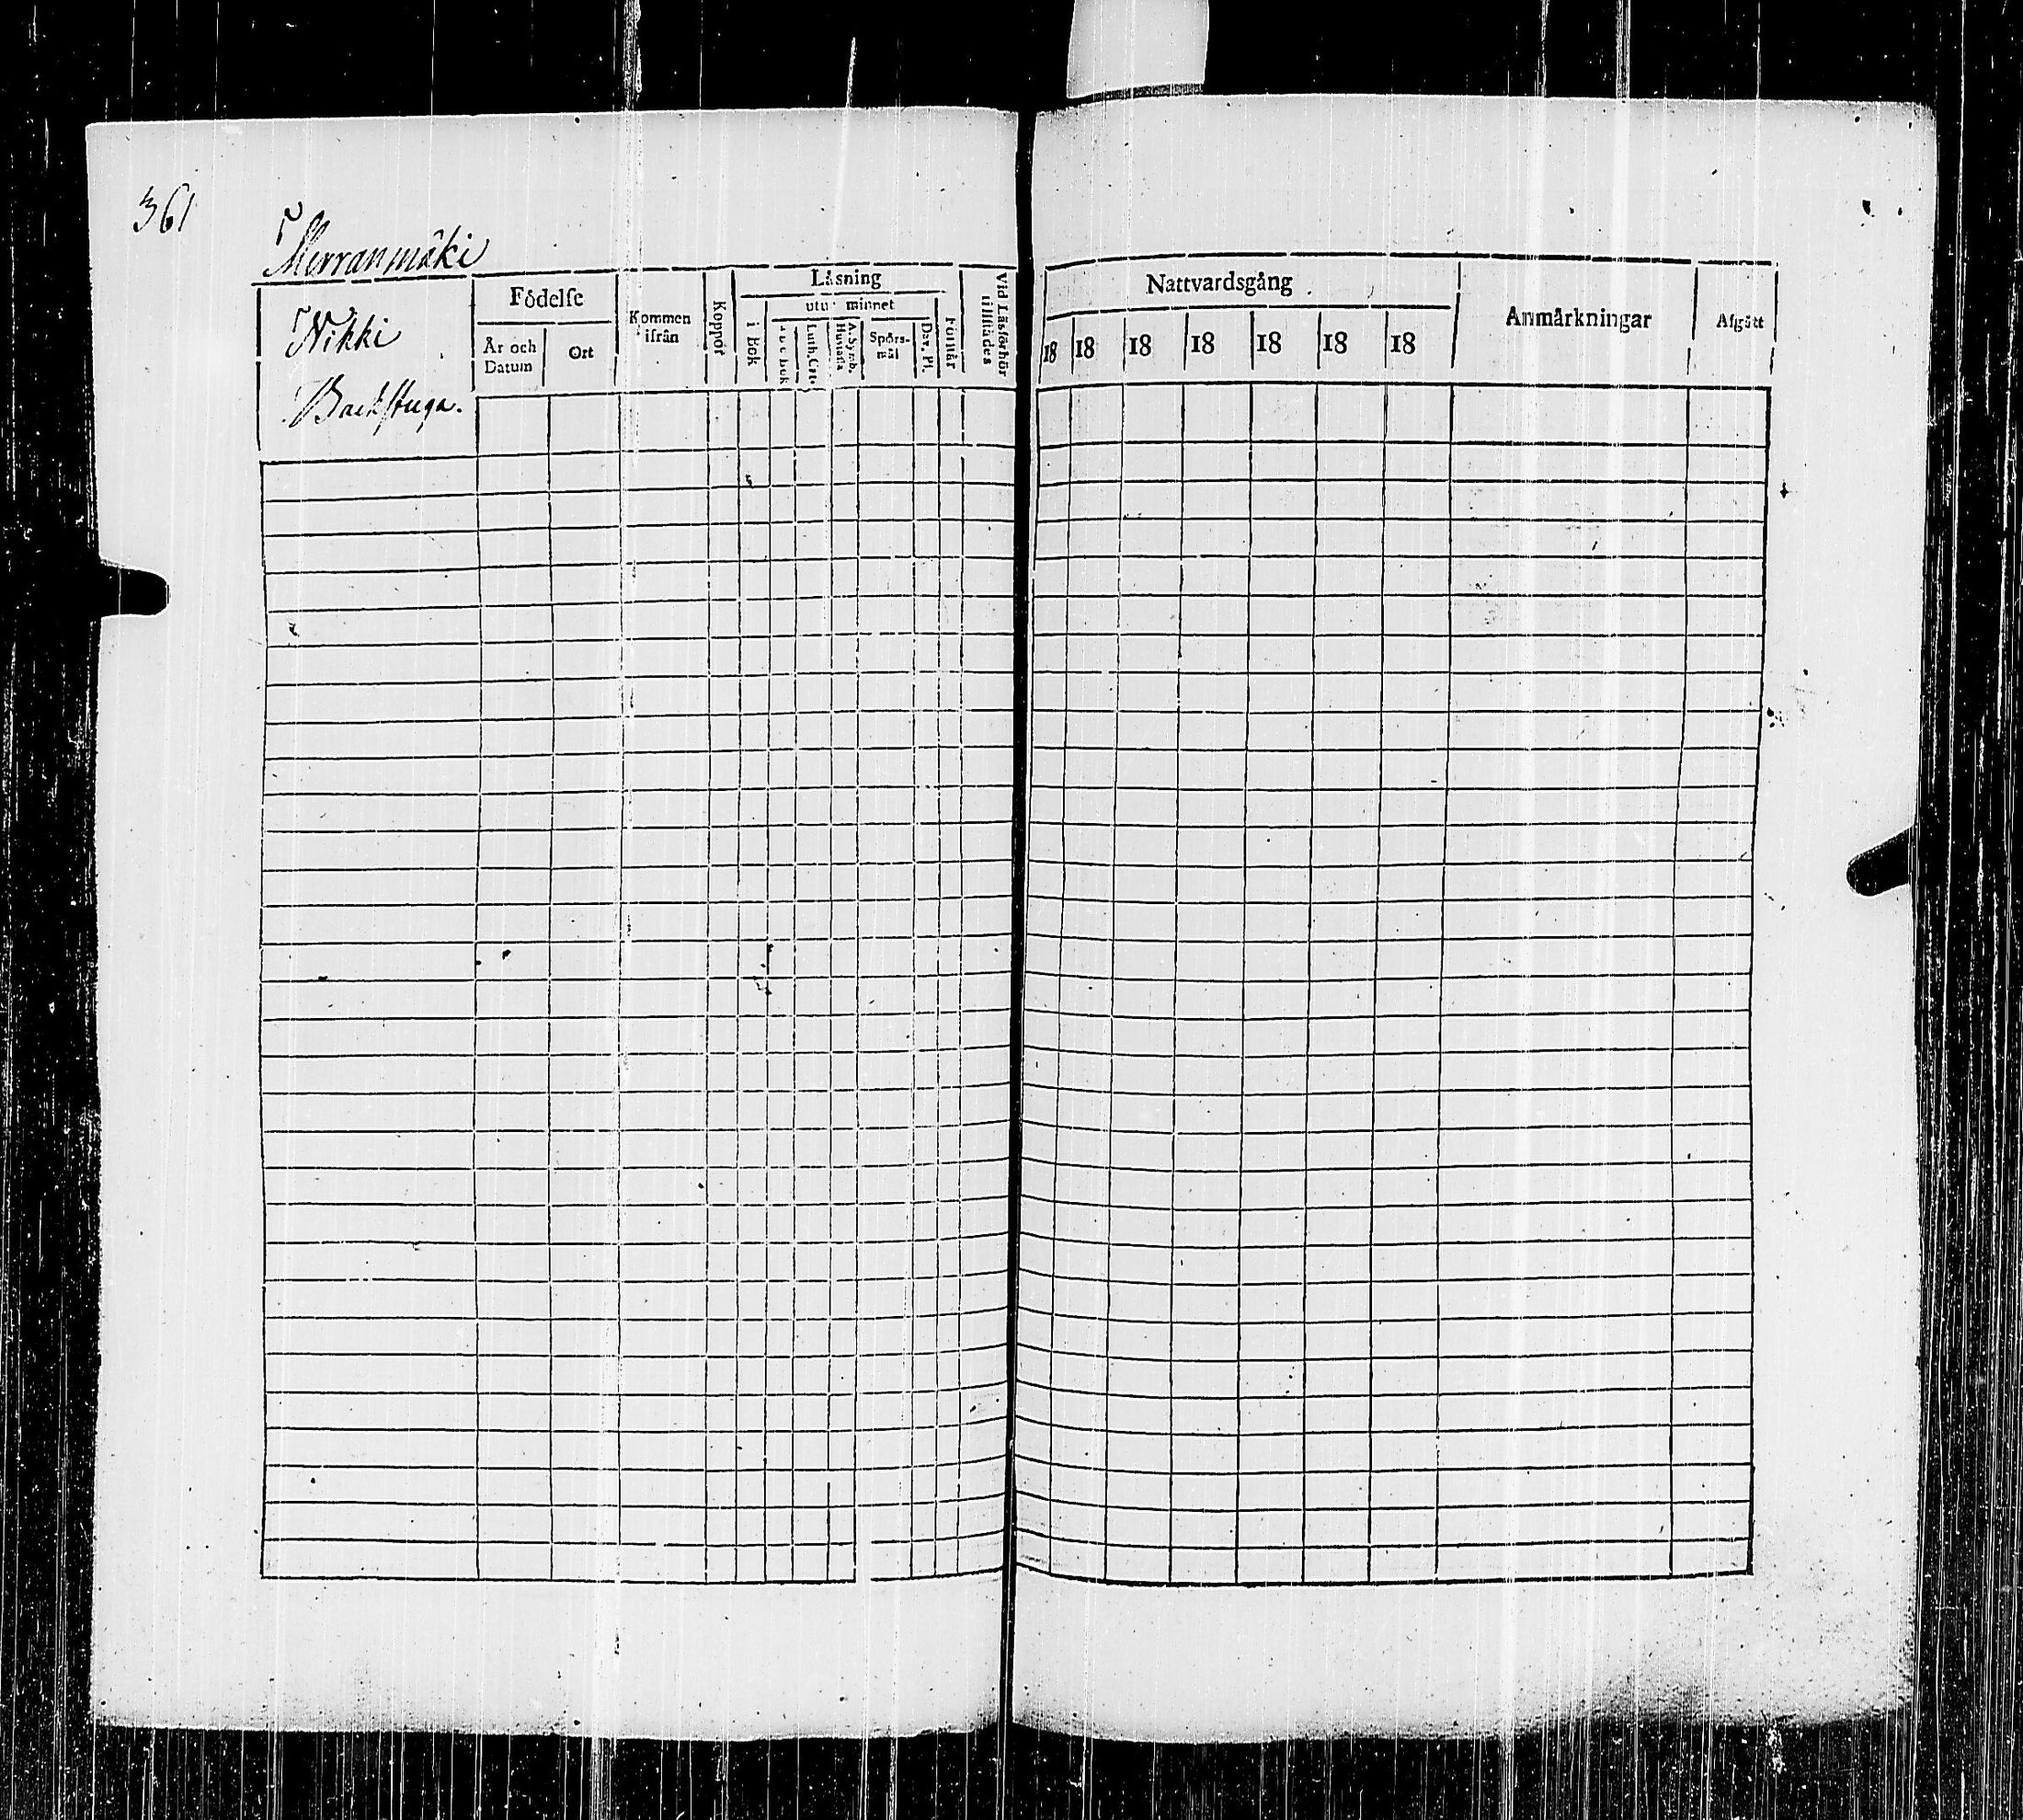 361
Merranmäki
Nikki
Backstuga.
Födelse
År och Datum
Ort
Kommen ifrån
Koppor
Läsning
i Bok
utur minnet
A b c bok
Luth. Cate
A. Symb. Hustafla
Spörs-mål
Dav. Ps.
Förstår
Vid Läsförhör tillstädes
Nattvardsgång
18 18 18 18 18 18 18
Anmärkningar
Afgått